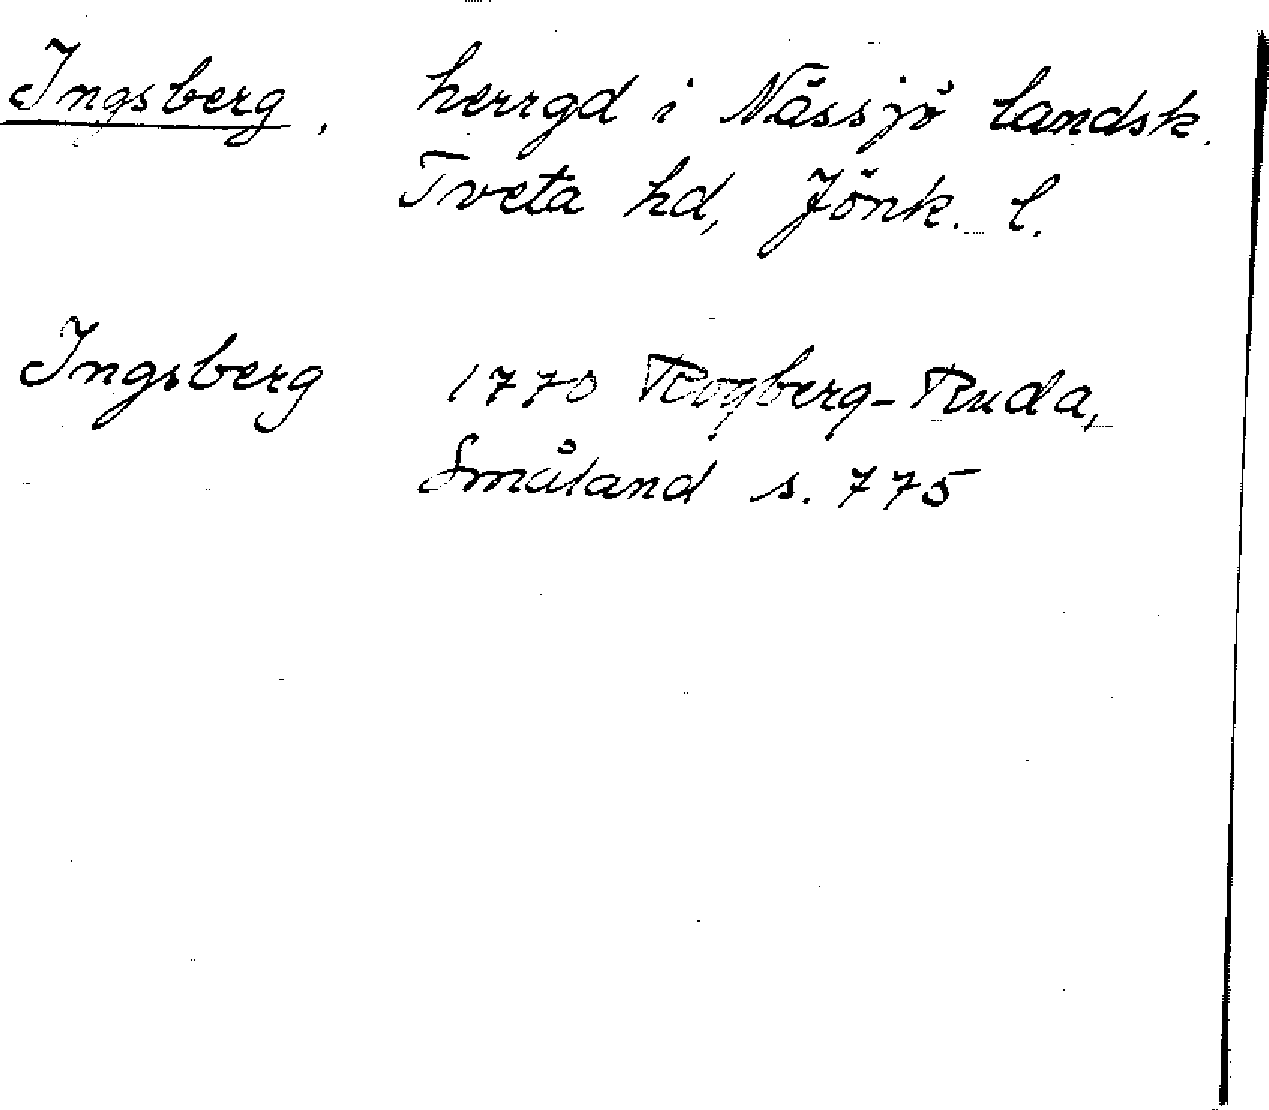 Ingsberg, herrgd i Nässjö landsk.
Tveta hd, Jönk. l.
Ingsberg 1770 Rogberg-Ruda,
Småland s. 775